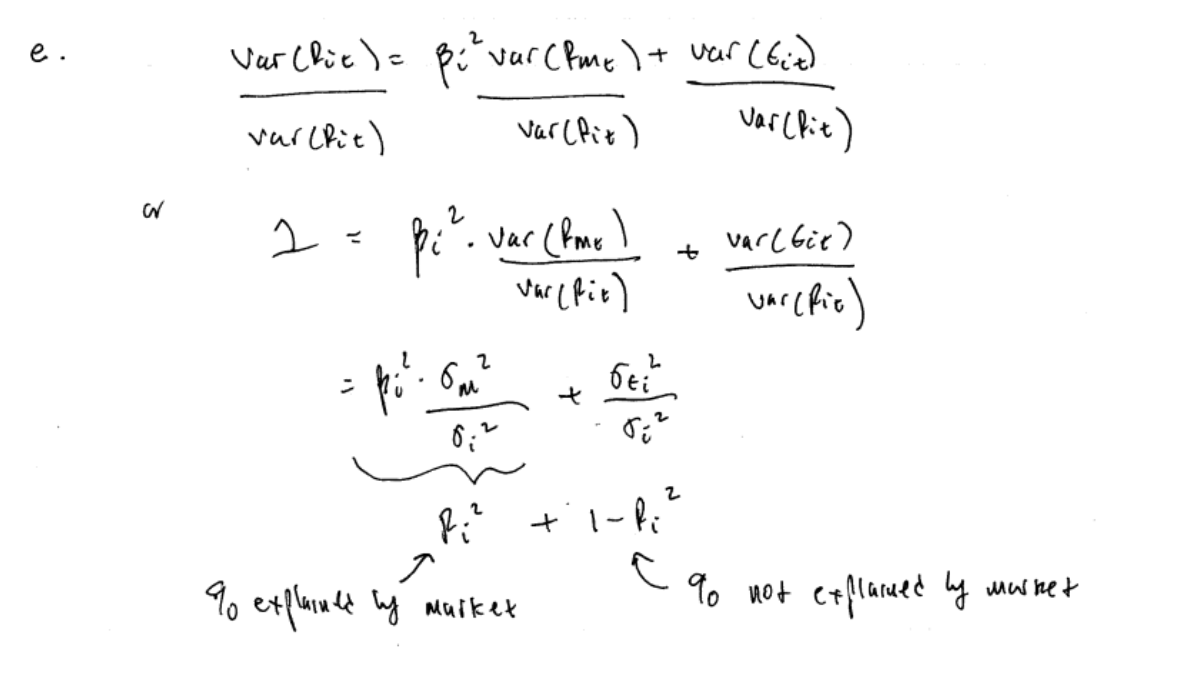 e. var(Rit) = βi² var(Rmt) + var(εit)
var(Rit) var(Rit) var(Rit)
or 1 = βi² · var(Rmt) + var(εit)
var(Rit) var(Rit)
= βi² · σm² + σεi²
σi² σi²
Ri² + 1 - Ri²
% explained by market % not explained by market